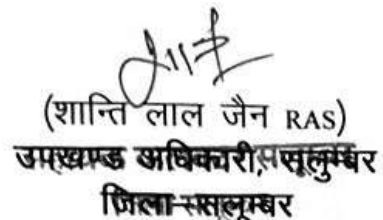 (शान्ति लाल जैन RAS)
उपखण्ड अधिकारी, सलुम्बर
जिला सलुम्बर